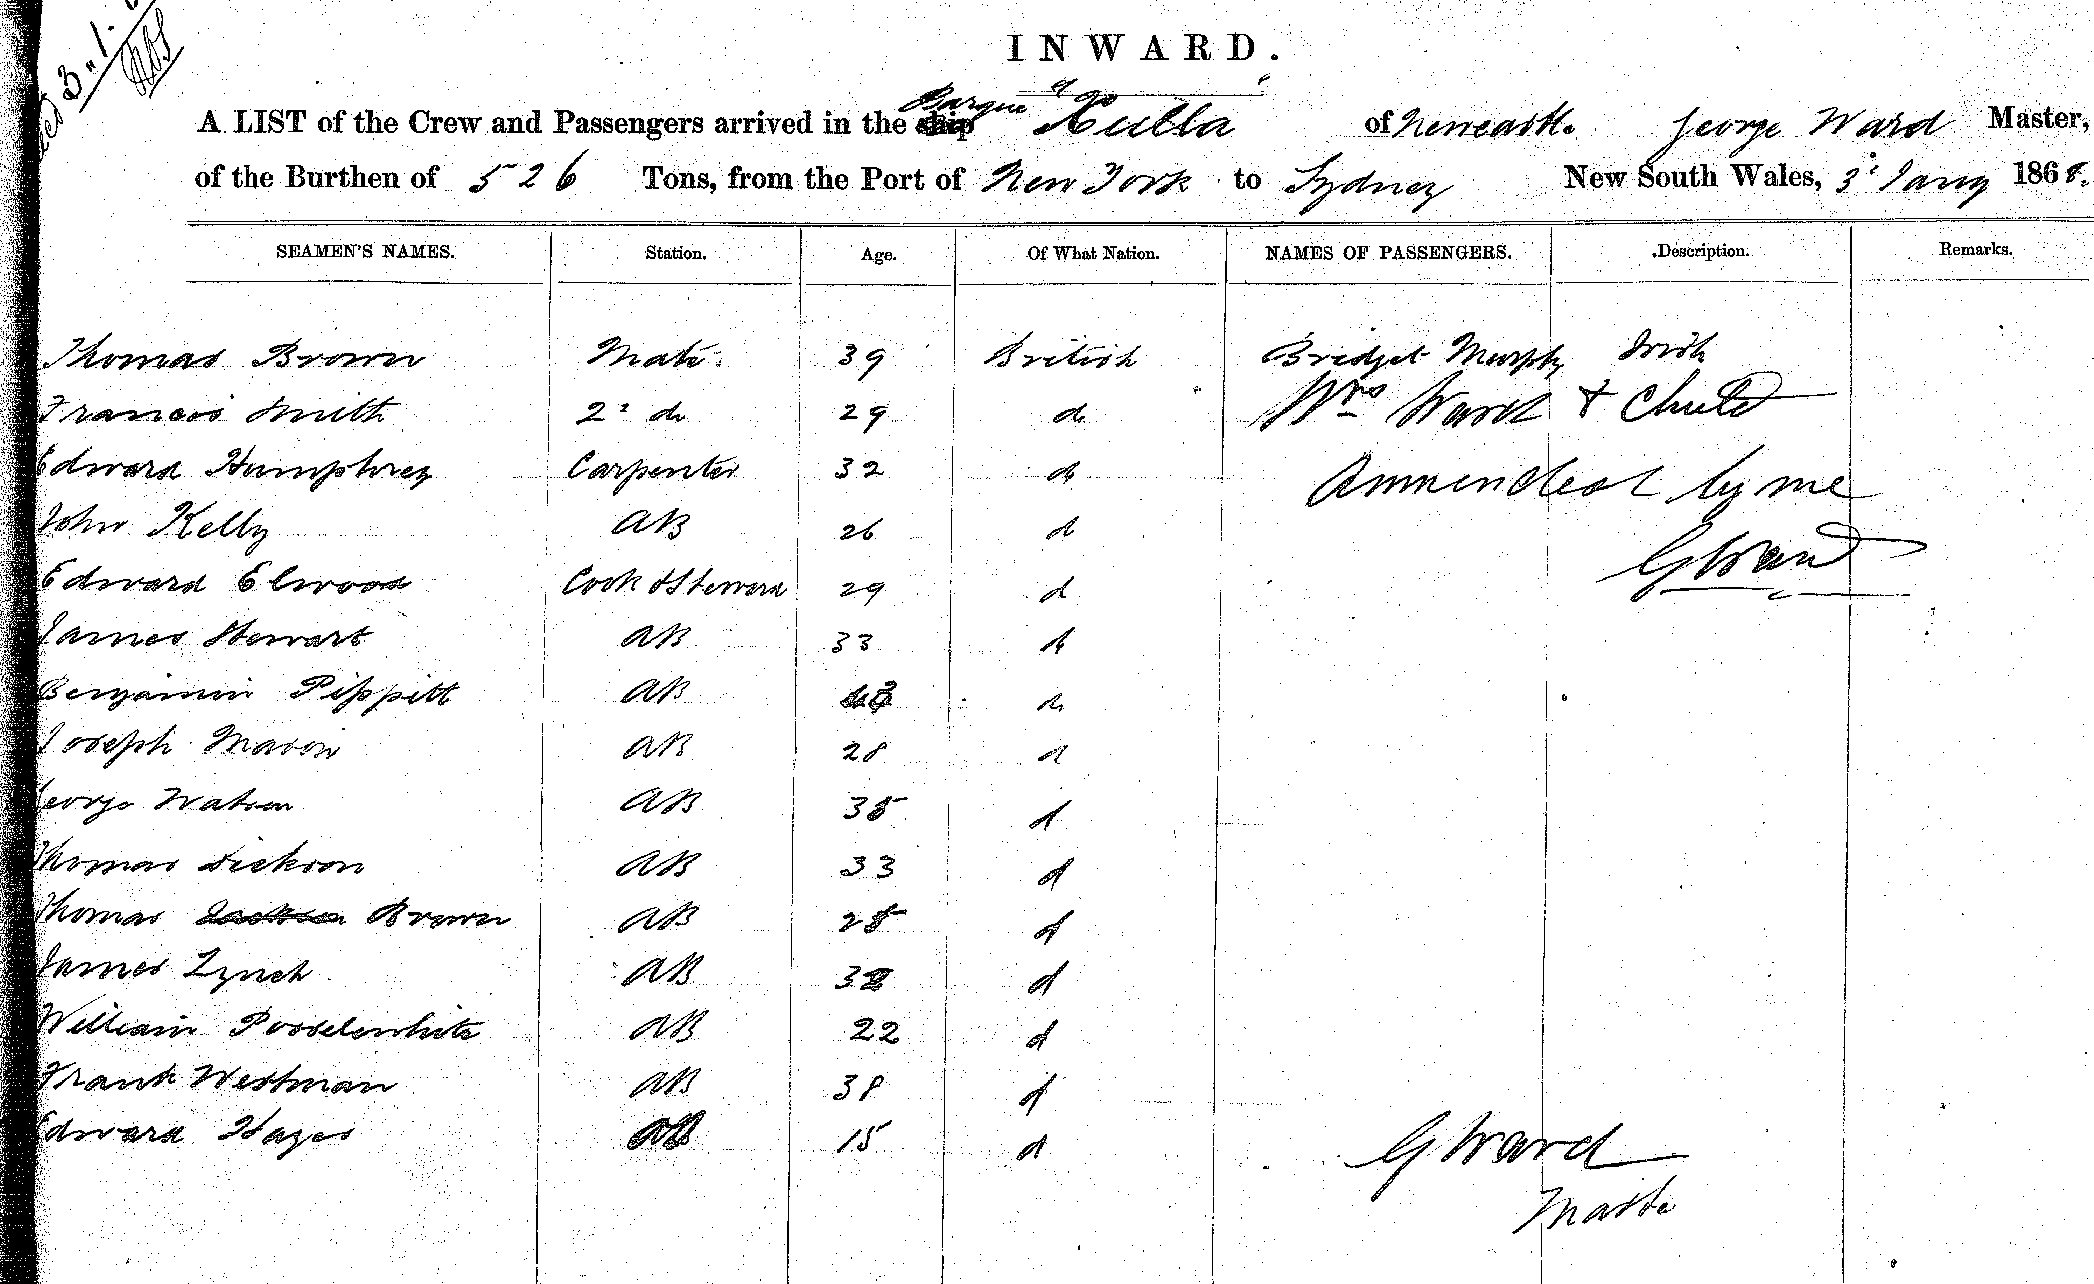 3. 1.
INWARD.
A LIST of the Crew and Passengers arrived in the ship Barque "Xulla" of Newcastle. George Ward Master,
of the Burthen of 526 Tons, from the Port of New York to Sydney New South Wales, 3d Jany 1868.
SEAMEN'S NAMES. Station. Age. Of What Nation. NAMES OF PASSENGERS. Description. Remarks.
Thomas Brown Mate 39 British Bridget Murphy Irish
Francis Smith 2d do 29 do Mrs Ward & Child
Edward Humphrey Carpenter 32 do Ammended by me
John Kelly AB 26 do
GWard
Edward Elwood Cook & Steward 29 do
James Stewart AB 33 do
Benjamin Pippitt AB do
Joseph Mason AB 28 do
George Watson AB 35 do
Thomas Dickson AB 33 do
Thomas Jackson Brown AB 25 do
James Lynch AB 32 do
William Posselwhite AB 22 do
Frank Westman AB 38 do
Edward Hayes 15 do
GWard
Master